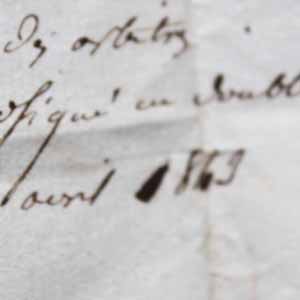 d'y arbitrer
signé en double
avril 1863